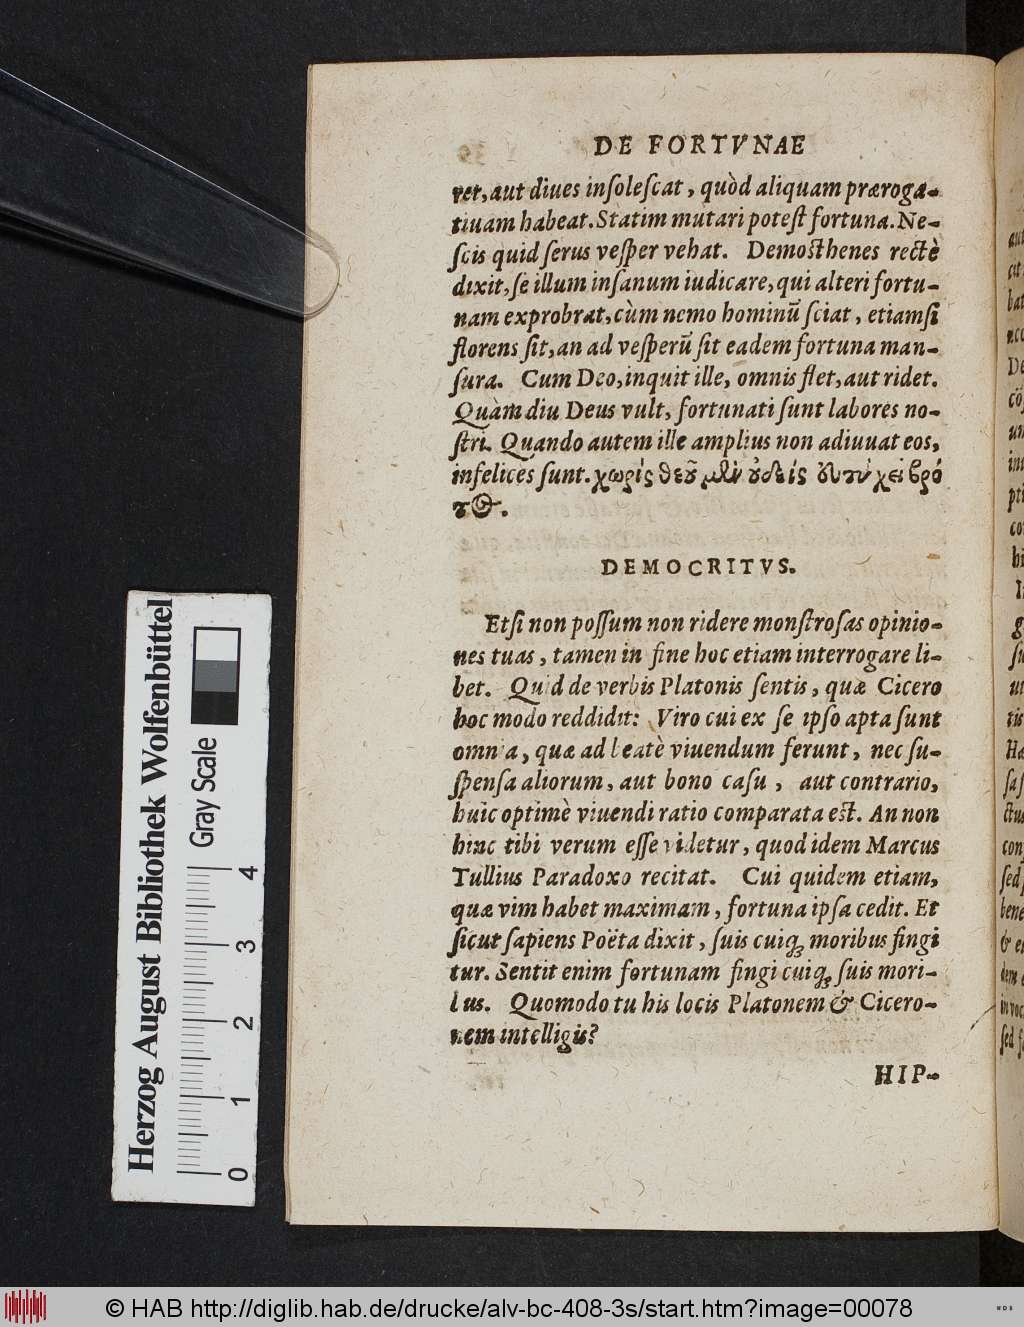 DE FORTVNAE
ret, aut diues inſoleſcat, quòd aliquam præroga-
tiuam habeat. Statim mutari poteſt fortuna. Ne-
ſcis quid ſerus veſper vehat. Demoſthenes rectè
dixit, ſe illum inſanum iudicare, qui alteri fortu-
nam exprobrat, cùm nemo hominũ ſciat, etiamſi
florens ſit, an ad veſperũ ſit eadem fortuna man-
ſura. Cum Deo, inquit ille, omnis flet, aut ridet.
Quàm diu Deus vult, fortunati ſunt labores no-
ſtri. Quando autem ille amplius non adiuuat eos,
infelices ſunt. χωρίς θεοῦ μὲν οὐδείς εὐτυχεῖ βρό
τος.
DEMOCRITVS.
Etſi non poſſum non ridere monſtroſas opinio-
nes tuas, tamen in fine hoc etiam interrogare li-
bet. Quid de verbis Platonis ſentis, quæ Cicero
hoc modo reddidit: Viro cui ex ſe ipſo apta ſunt
omnia, quæ ad beatè viuendum ferunt, nec ſu-
ſpenſa aliorum, aut bono caſu, aut contrario,
huic optimè viuendi ratio comparata eſt. An non
hinc tibi verum eſſe videtur, quod idem Marcus
Tullius Paradoxo recitat. Cui quidem etiam,
quæ vim habet maximam, fortuna ipſa cedit. Et
ſicut ſapiens Poëta dixit, ſuis cuiq; moribus fingi
tur. Sentit enim fortunam fingi cuiq; ſuis mori-
bus. Quomodo tu his locis Platonem & Cicero-
nem intelligis?
HIP-
Herzog August Bibliothek Wolfenbüttel
Gray Scale
0 1 2 3 4
© HAB http://diglib.hab.de/drucke/alv-bc-408-3s/start.htm?image=00078